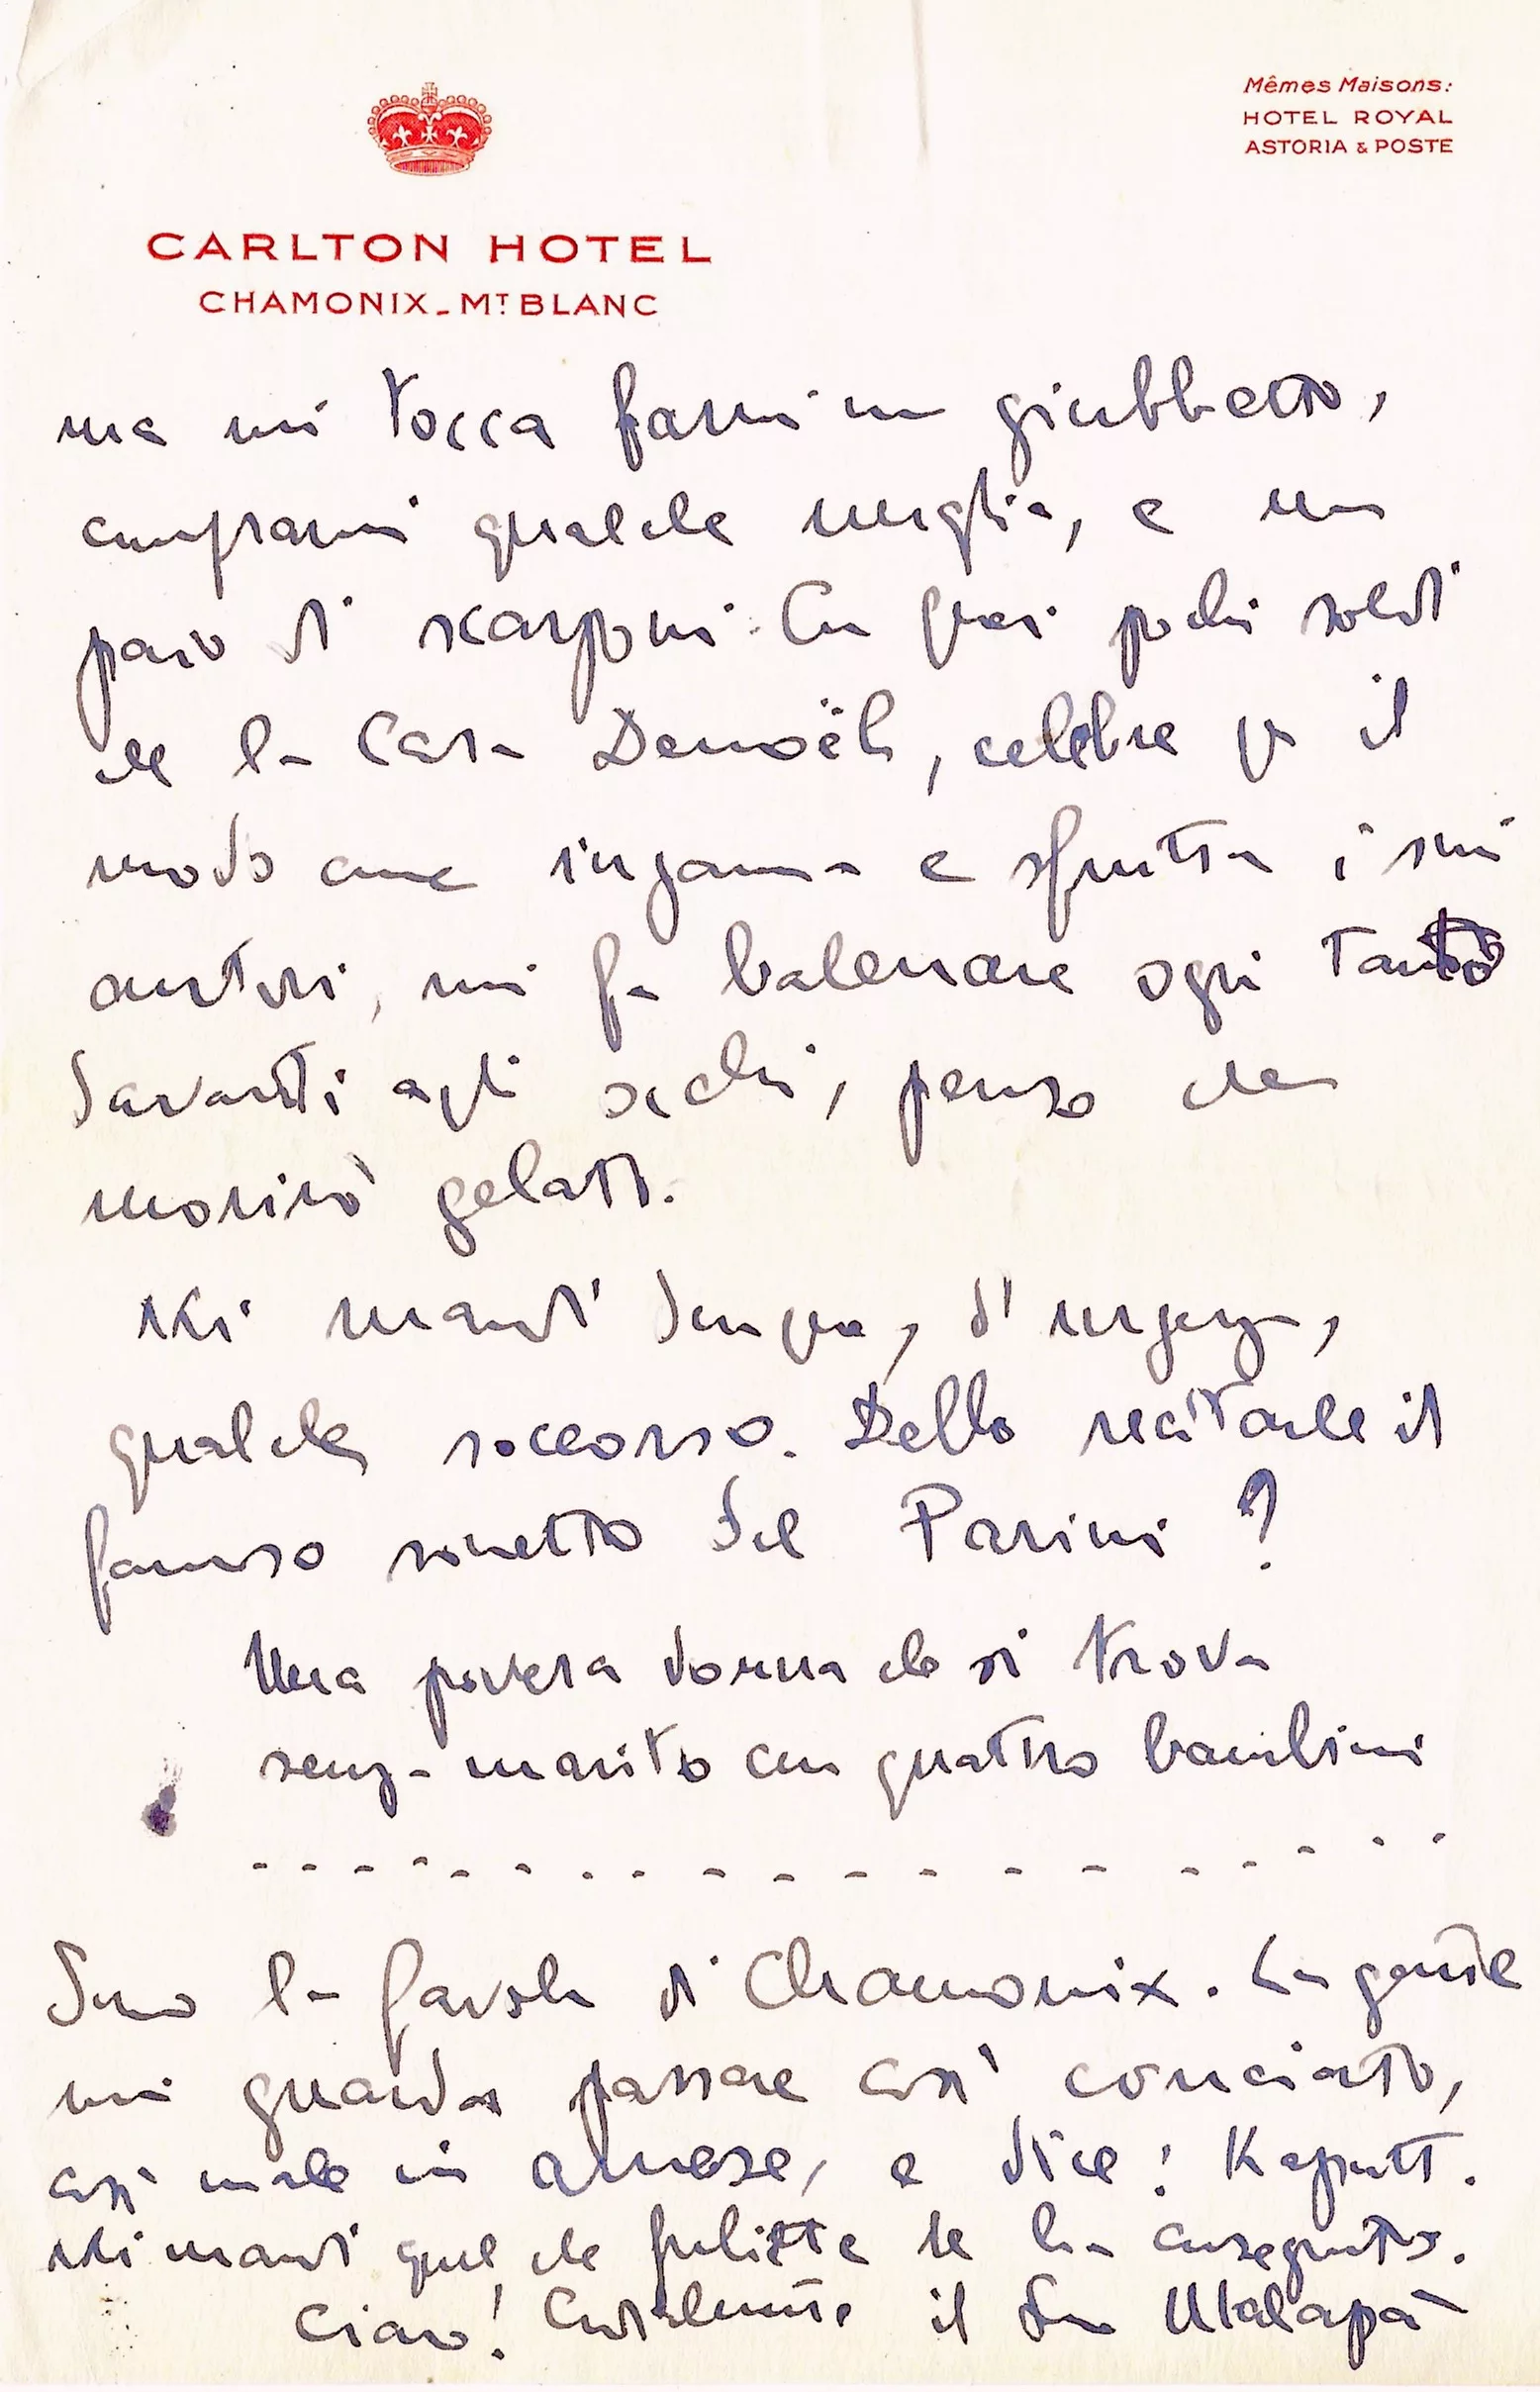 Mêmes Maisons:
HOTEL ROYAL
ASTORIA & POSTE
CARLTON HOTEL
CHAMONIX_MT BLANC
ma mi tocca farmi un giubbetto,
comprarmi qualche maglia, e un
paio di scarponi. Con quei pochi soldi
che la Casa Denoël, celebre per il
modo come inganna e sfrutta i suoi
autori, mi fa balenare ogni tanto
davanti agli occhi, penso che
morirò gelato.
Mi mandi dunque, d'urgenza,
qualche soccorso. Debbo recitarle il
famoso sonetto del Parini?
Una povera donna che si trova
senza marito con quattro bambini
- - - - - - - - - - - - - - - - - -
Sono la favola di Chamonix. La gente
mi guarda passare così conciato,
così male in arnese, e dice: Kaputt.
Mi mandi quel che Juliette le ha consegnato.
Ciao! Cordialmente il Suo Malaparte